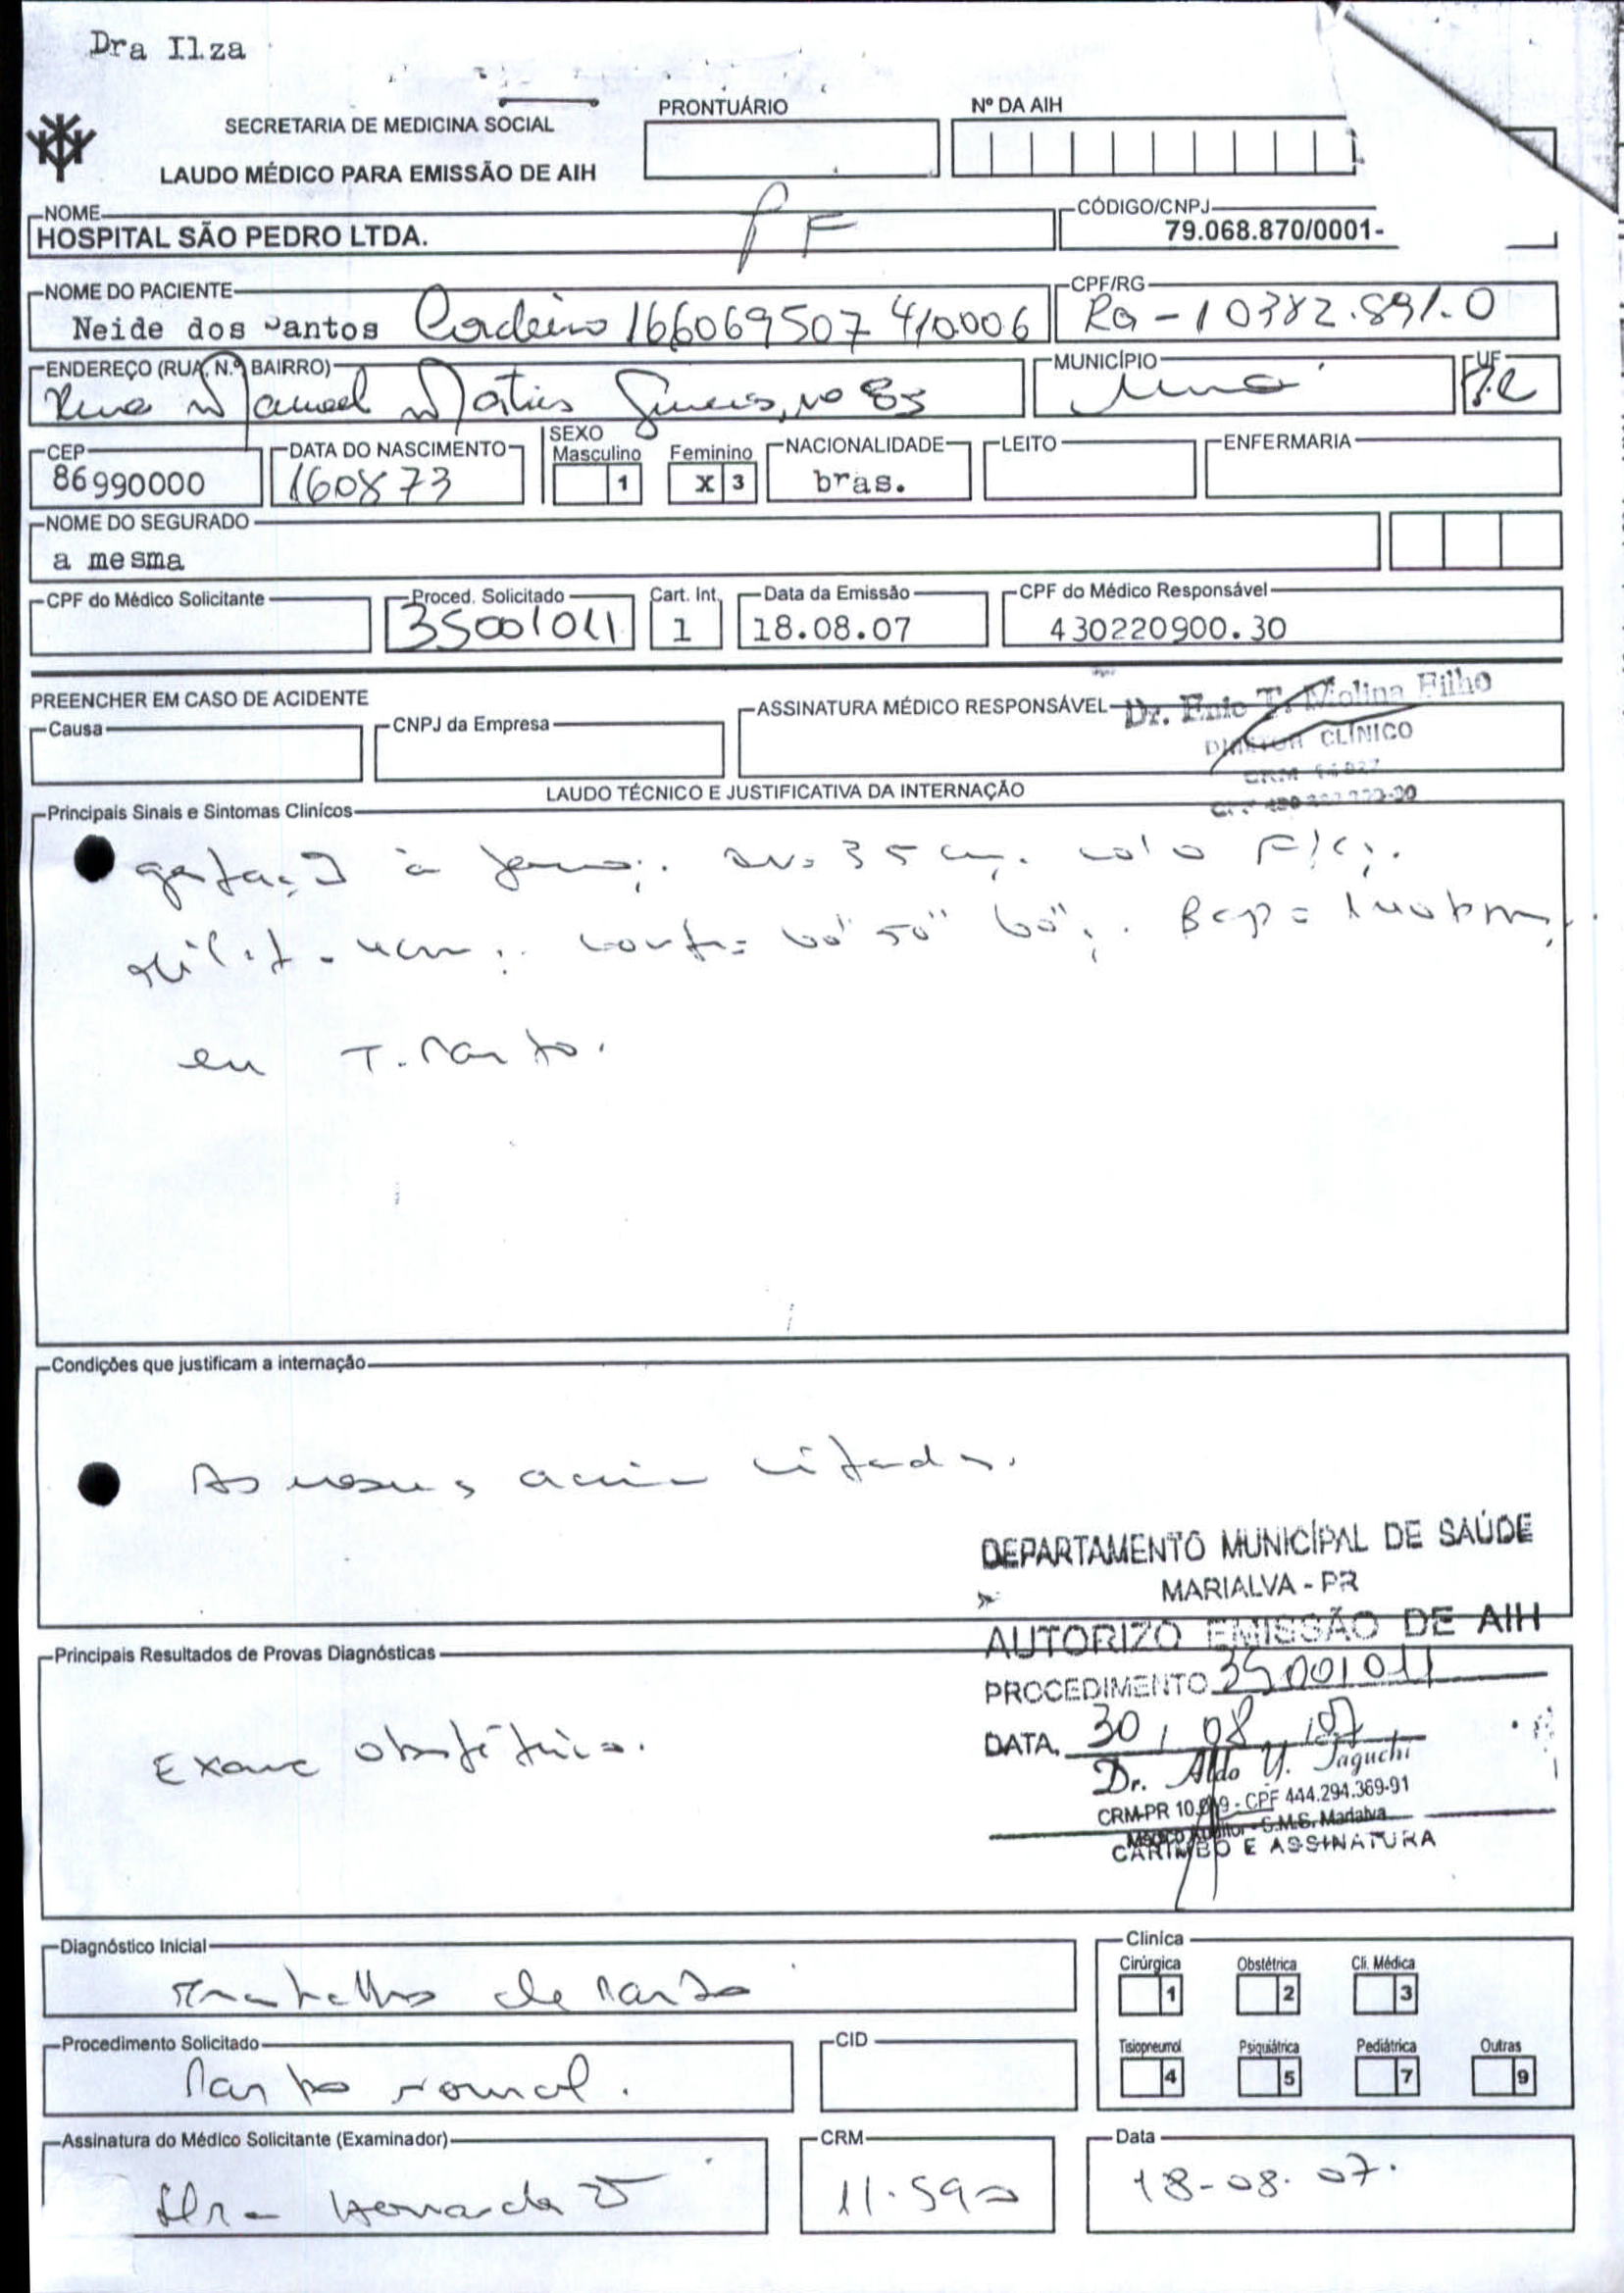 Dra Ilza
SECRETARIA DE MEDICINA SOCIAL
LAUDO MÉDICO PARA EMISSÃO DE AIH
PRONTUÁRIO
Nº DA AIH
NOME
HOSPITAL SÃO PEDRO LTDA.
CÓDIGO/CNPJ
79.068.870/0001-
NOME DO PACIENTE
Neide dos Santos Cordeiro 166069507 410006
CPF/RG
RG - 10382.891.0
ENDEREÇO (RUA, N.º BAIRRO)
Rua Manoel Matias nº 85
MUNICÍPIO
UF
PR
CEP
86990000
DATA DO NASCIMENTO
160873
SEXO
Masculino 1
Feminino X 3
NACIONALIDADE
bras.
LEITO
ENFERMARIA
NOME DO SEGURADO
a mesma
CPF do Médico Solicitante
Proced. Solicitado
35001011
Cart. Int.
1
Data da Emissão
18.08.07
CPF do Médico Responsável
430220900.30
PREENCHER EM CASO DE ACIDENTE
Causa
CNPJ da Empresa
ASSINATURA MÉDICO RESPONSÁVEL
Dr. Enio T. Molina Filho
DIRETOR CLÍNICO
LAUDO TÉCNICO E JUSTIFICATIVA DA INTERNAÇÃO
Principais Sinais e Sintomas Clinícos
gestação à termo; 35 cm. colo
em T. Parto.
Condições que justificam a internação
As mesmas acima citadas.
DEPARTAMENTO MUNICÍPAL DE SAÚDE
MARIALVA - PR
AUTORIZO EMISSÃO DE AIH
PROCEDIMENTO 35001011
DATA 30 / 08 / 07
Dr. Aldo Y. Taguchi
CRM-PR - CPF 444.294.369-91
Médico Auditor - S.M.S. Marialva
CARIMBO E ASSINATURA
Principais Resultados de Provas Diagnósticas
Exame obstétrico.
Diagnóstico Inicial
Trabalho de Parto
Clínica
Cirúrgica 1
Obstétrica 2
Cli. Médica 3
Tisiopneumol 4
Psiquiátrica 5
Pediátrica 7
Outras 9
Procedimento Solicitado
Parto normal.
CID
Assinatura do Médico Solicitante (Examinador)
CRM
11.590
Data
18-08-07.